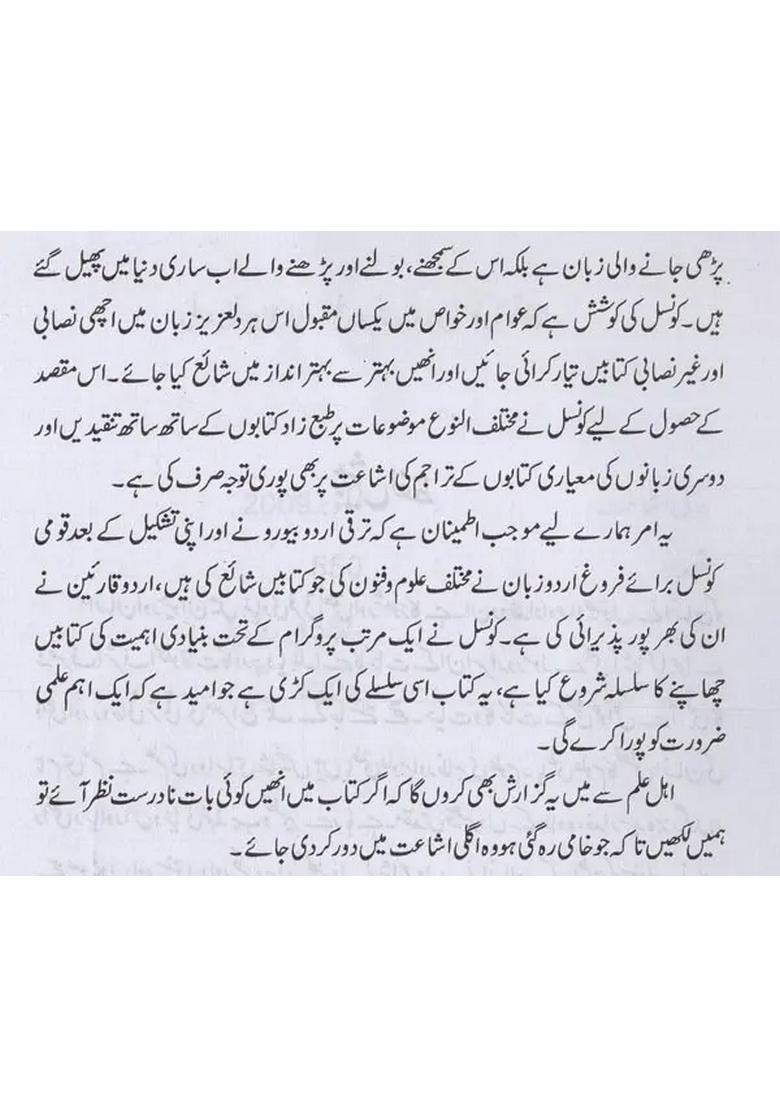 پڑھی جانے والی زبان ہے بلکہ اس کے سمجھنے، بولنے اور پڑھنے والے اب ساری دنیا میں پھیل گئے
ہیں۔ کونسل کی کوشش ہے کہ عوام اور خواص میں یکساں مقبول اس ہردلعزیز زبان میں اچھی نصابی
اور غیر نصابی کتابیں تیار کرائی جائیں اور انھیں بہتر سے بہتر انداز میں شائع کیا جائے۔ اس مقصد
کے حصول کے لیے کونسل نے مختلف النوع موضوعات پر طبع زاد کتابوں کے ساتھ ساتھ تنقیدیں اور
دوسری زبانوں کی معیاری کتابوں کے تراجم کی اشاعت پر بھی پوری توجہ صرف کی ہے۔
یہ امر ہمارے لیے موجب اطمینان ہے کہ ترقی اردو بیورو نے اور اپنی تشکیل کے بعد قومی
کونسل برائے فروغ اردو زبان نے مختلف علوم وفنون کی جو کتابیں شائع کی ہیں، اردو قارئین نے
ان کی بھر پور پذیرائی کی ہے۔ کونسل نے ایک مرتب پروگرام کے تحت بنیادی اہمیت کی کتابیں
چھاپنے کا سلسلہ شروع کیا ہے، یہ کتاب اسی سلسلے کی ایک کڑی ہے جو امید ہے کہ ایک اہم علمی
ضرورت کو پورا کرے گی۔
اہل علم سے میں یہ گزارش بھی کروں گا کہ اگر کتاب میں انھیں کوئی بات نادرست نظر آئے تو
ہمیں لکھیں تا کہ جو خامی رہ گئی ہو وہ اگلی اشاعت میں دور کردی جائے۔